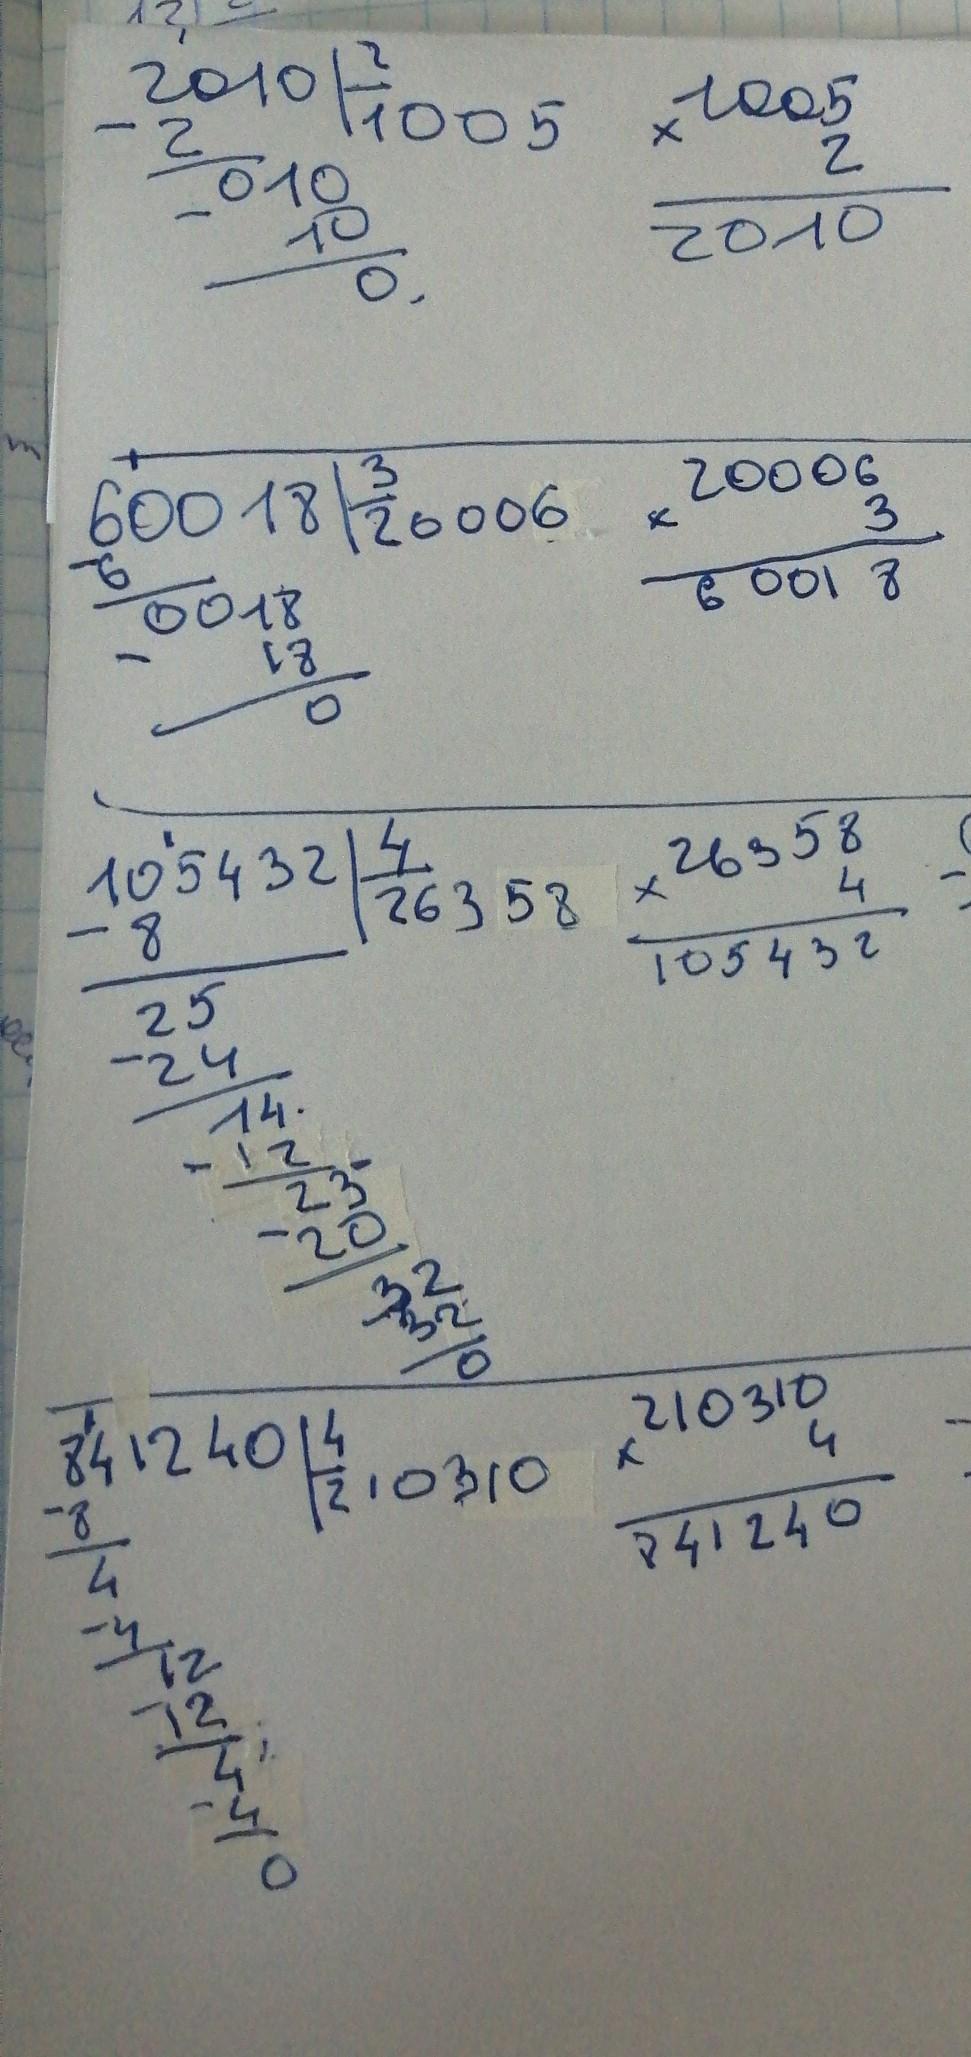 2010 | 2
- 2 1005
010
- 10
0.
× 1005
2
2010
60018 | 3
- 6 20006
0018
- 18
0
× 20006
3
60018
105432 | 4
- 8 26358
25
- 24
14.
- 12
23
- 20
32
32
0
× 26358
4
105432
841240 | 4
- 8 210310
4
- 4
12
- 12
4
- 4
0
× 210310
4
841240